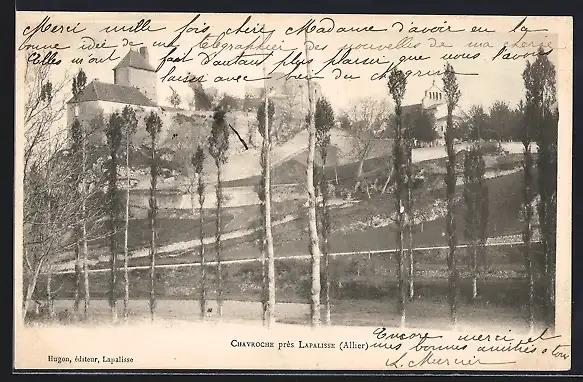 Merci mille fois chère Madame d'avoir eu la
bonne idée de me télégraphier des nouvelles de ma chérie
Elles m'ont fait d'autant plus plaisir que nous l'avons
laissée avec bien du chagrin
CHAVROCHE près LAPALISSE (Allier)
Encore merci et
mes bonnes amitiés a tous
Hugon, éditeur, Lapalisse